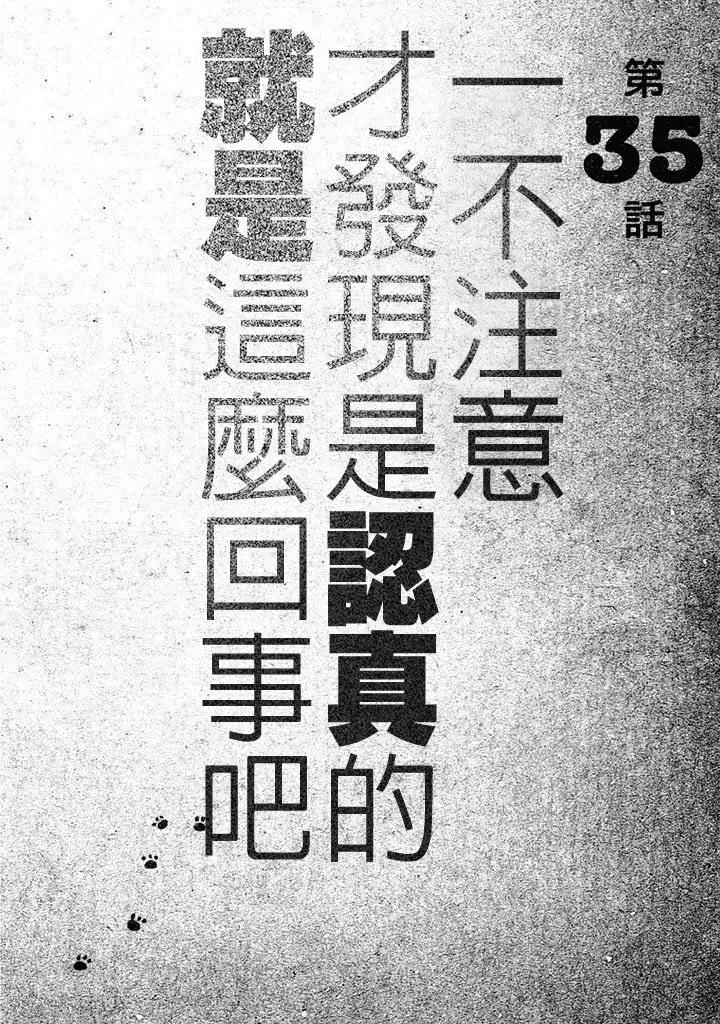 第35話
一不注意
才發現是認真的
就是這麼回事吧